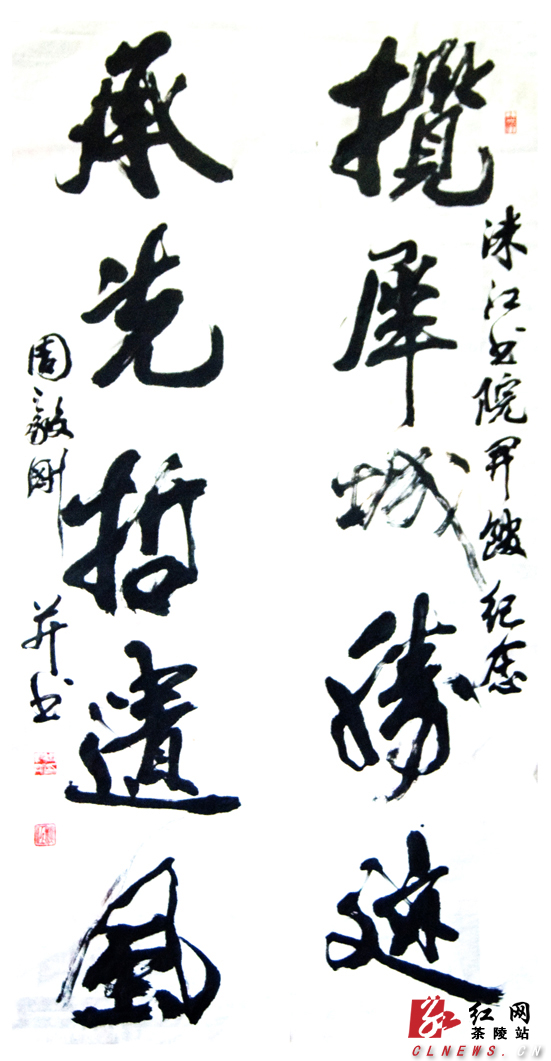 洣江书院開館纪念
攬犀城勝迹
承先哲遺風
周毅剛
并书
红网
茶陵站
CLNEWS.CN